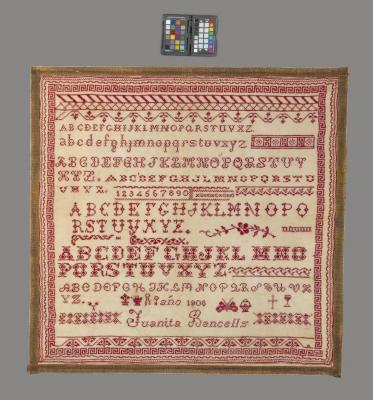 ABCDEFGHIJKLMNOPQRSTUVXZ
abcdefghjmnopqrstuvxyz
ABCDEFGHIJKLMNOPQRSTUVY
XYZ. ABCDEFGHJLMNOPQRSTU
VXYZ. 1234567890
ABCDEFGHJKLMNOPO
RSTUVXYZ.
ABCDEFGHJKL MNO
PQRSTUVXYZ
ABCDEFGHIJKLMNOPQRSTUVX
YZ. Año 1906
Juanita Rencells